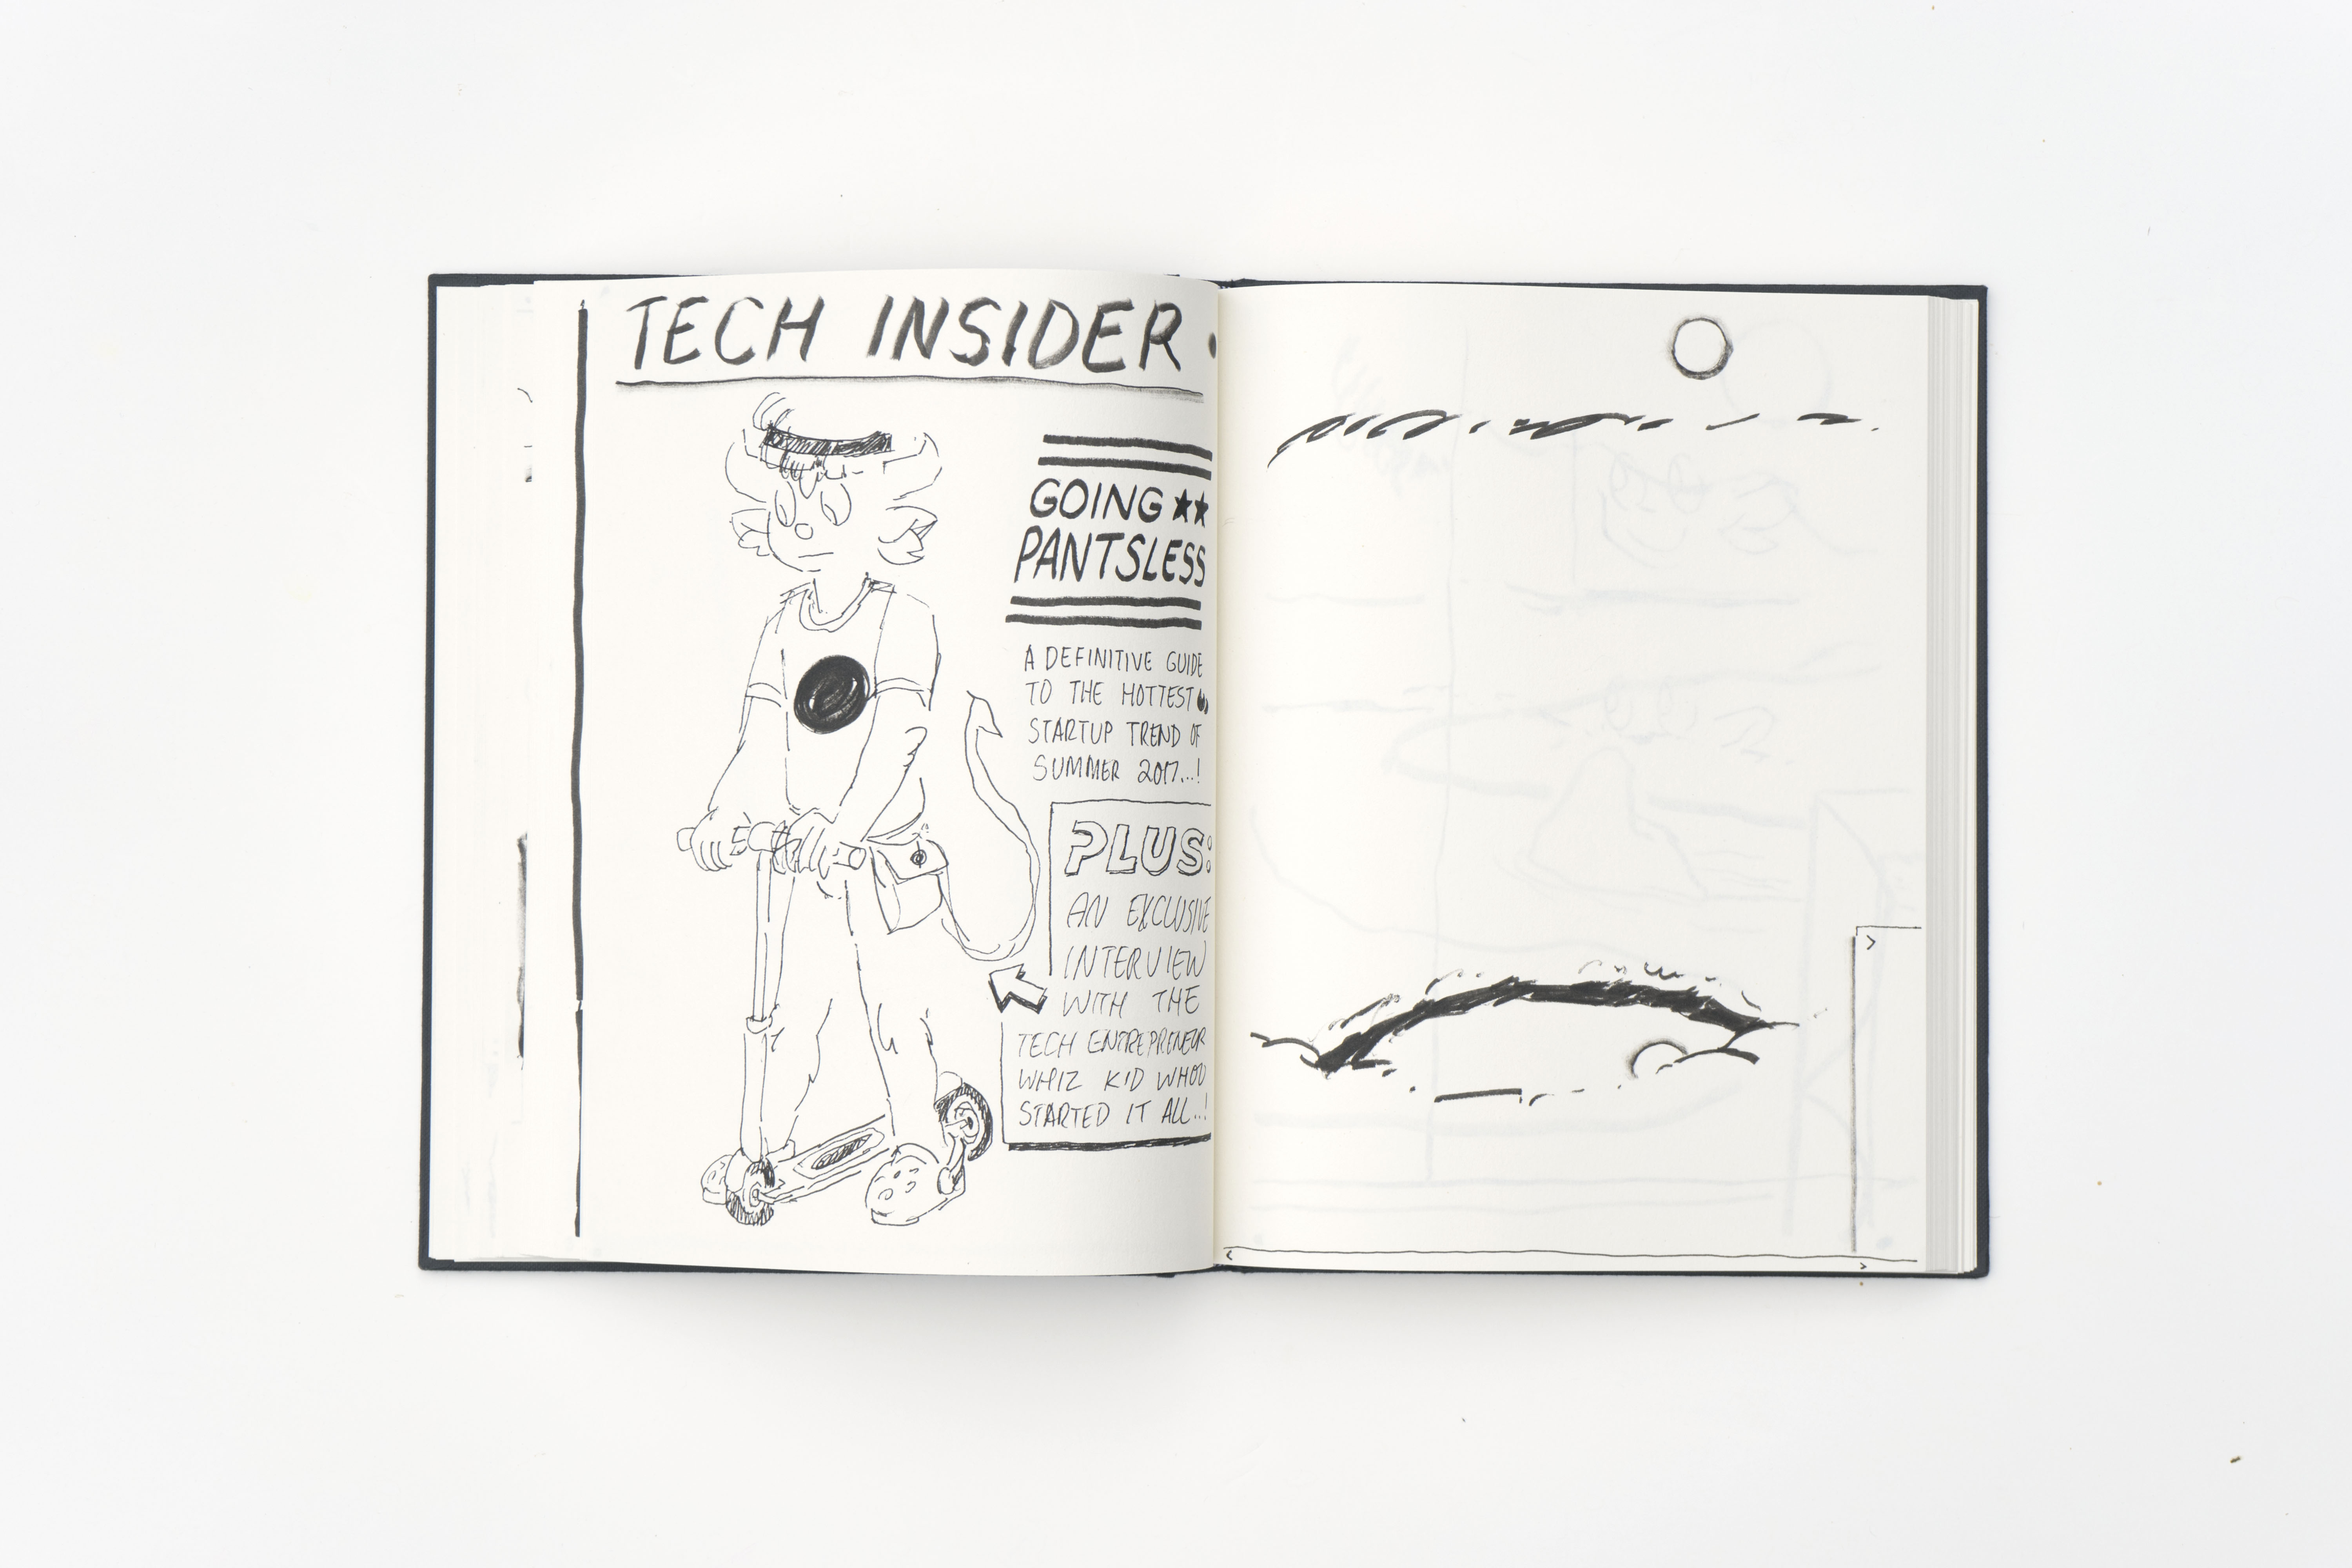 TECH INSIDER
GOING ★★
PANTSLESS
A DEFINITIVE GUIDE
TO THE HOTTEST
STARTUP TREND OF
SUMMER 2017...!
PLUS:
AN EXCLUSIVE
INTERVIEW
WITH THE
TECH ENTREPRENEUR
WHIZ KID WHO
STARTED IT ALL...!